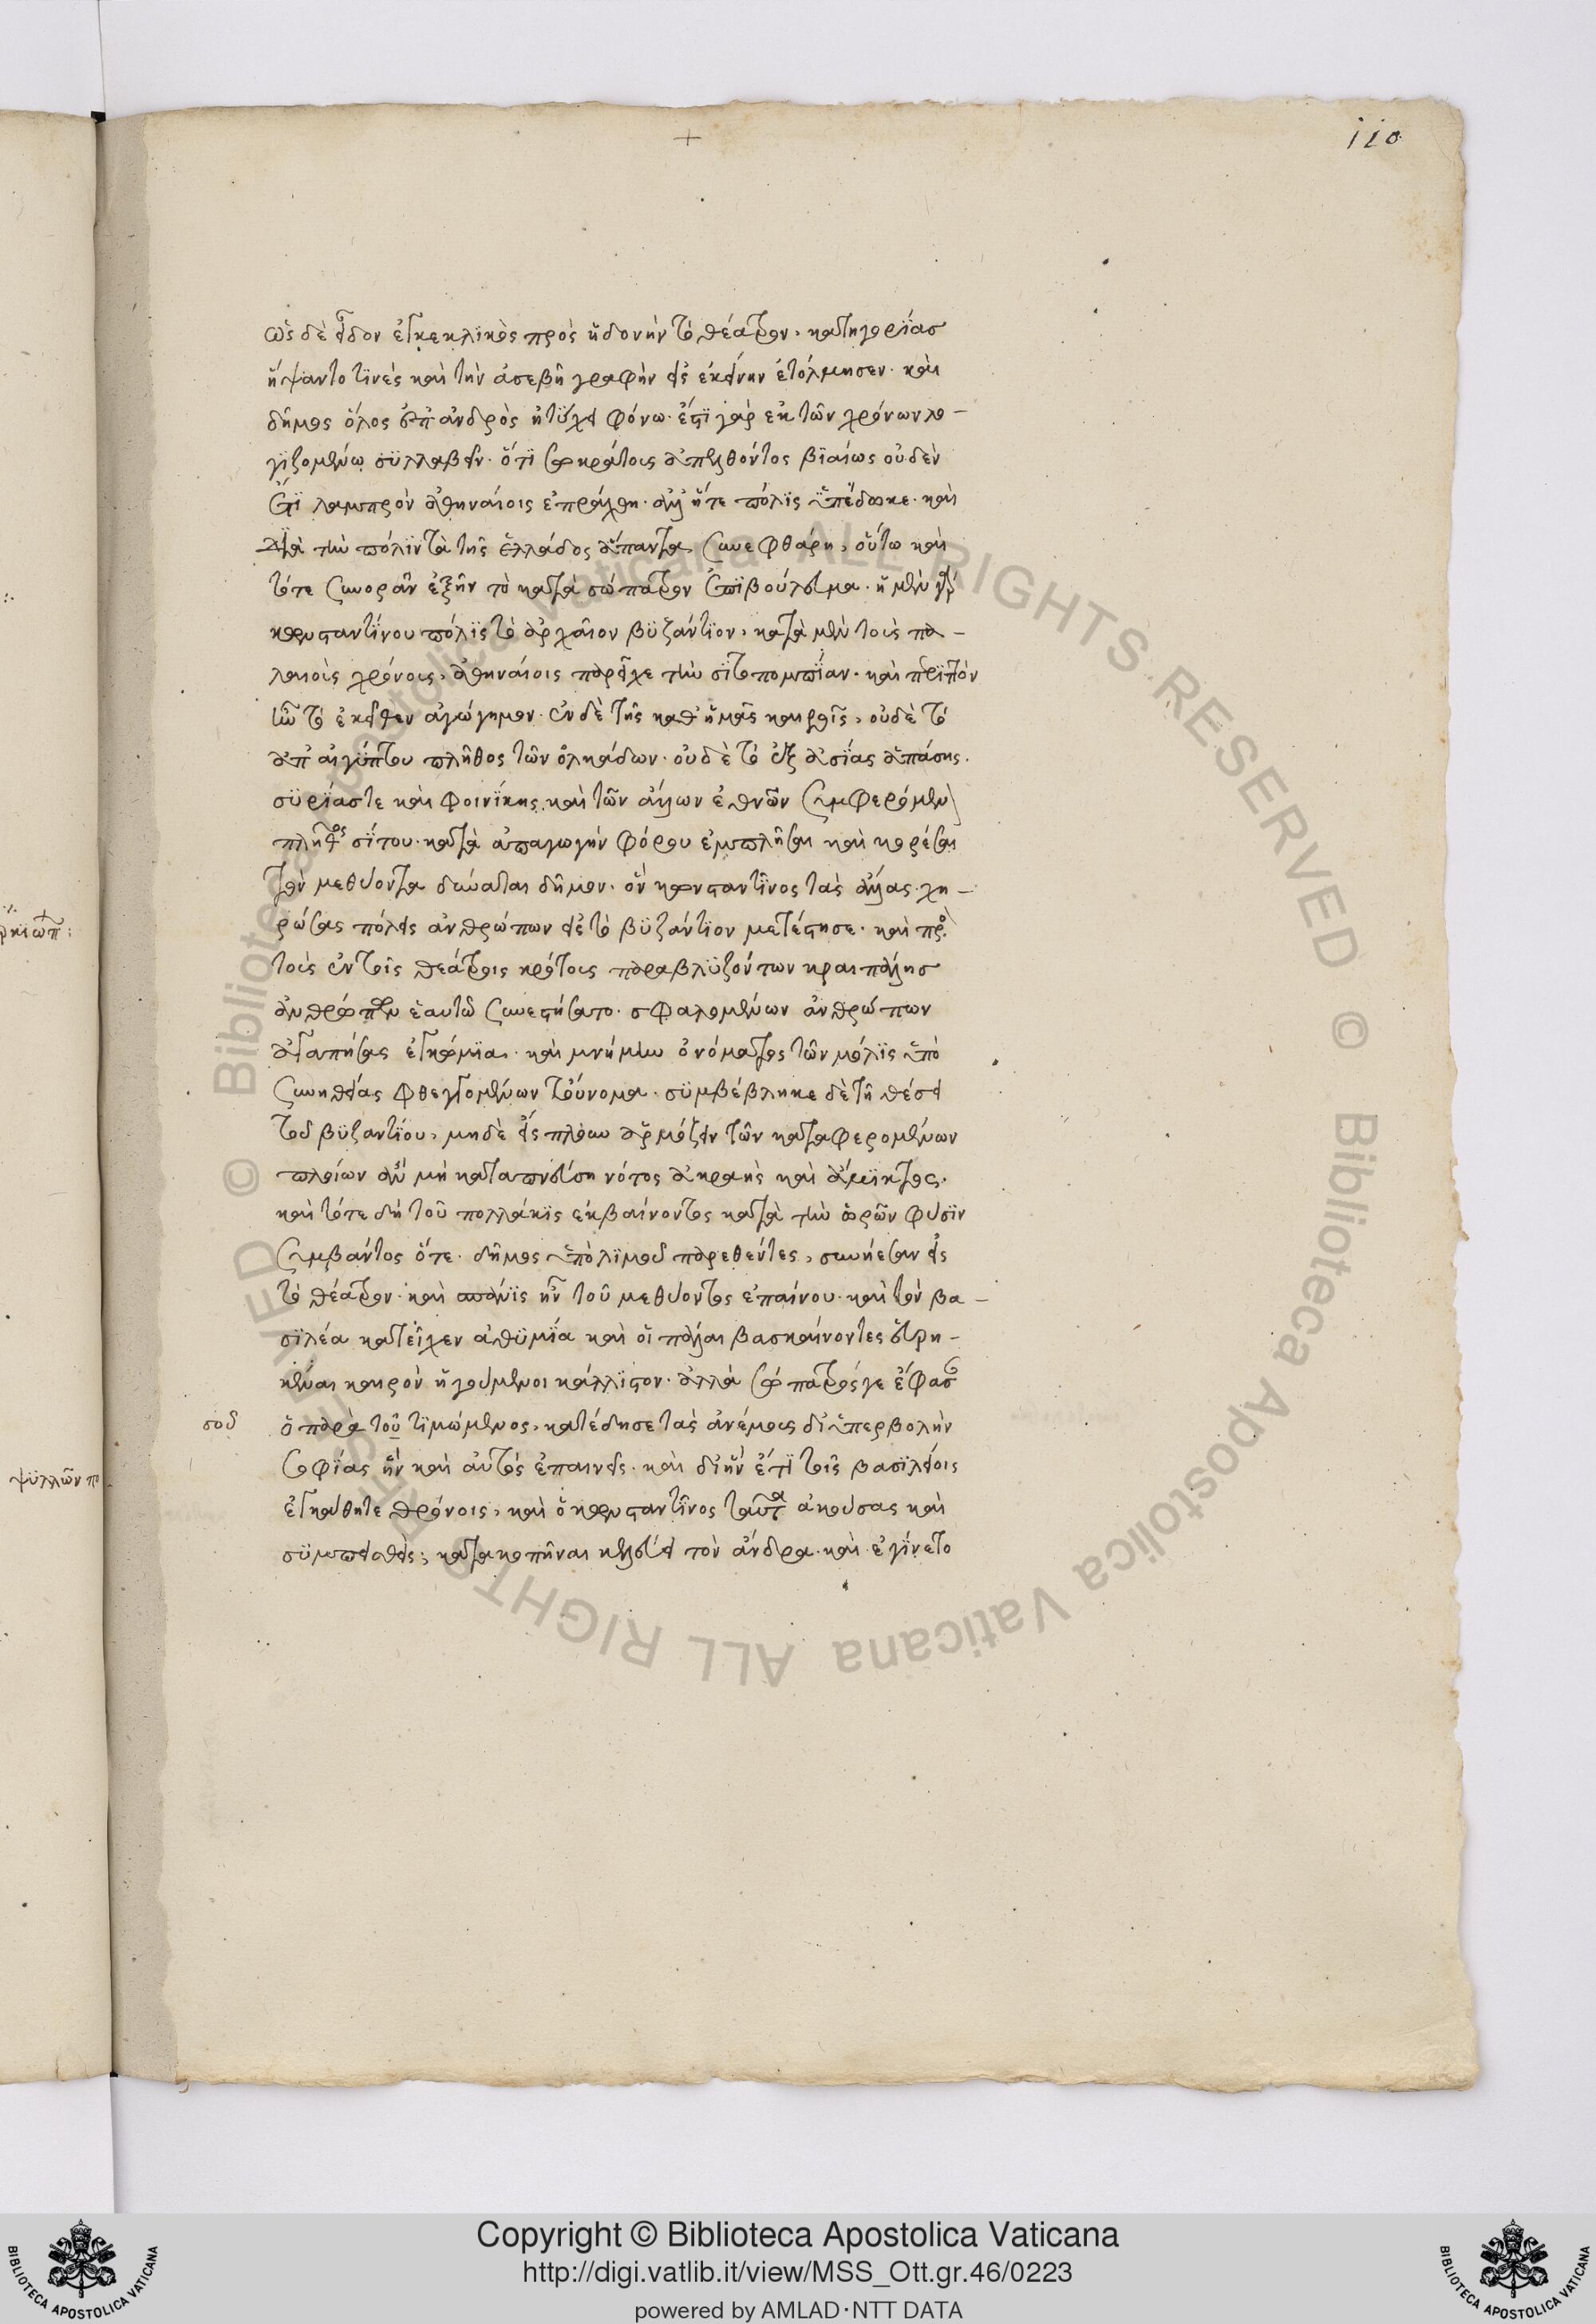 110
ὡς δὲ εἶδον ἐγκεκλικὸς πρὸς ἡδονὴν τὸ θέατρον, κατηγορίας
ἥψαντο τινὲς καὶ τὴν ἀσεβῆ γραφὴν εἰς ἐκείνην ἐτόλμησεν. καὶ
δῆμος ὅλος ἐπ' ἀνδρὸς ηὐτύχει φόνω. ἔστι γὰρ ἐκ τῶν χρόνων λο-
γιζομένω συλλαβεῖν. ὅτι σωκράτους ἀπελθόντος βιαίως οὐδὲν
ἔτι λαμπρὸν ἀθηναίοις ἐπράχθη. ἀλλ' ἥτε πόλις ὑπέδωκε. καὶ
διὰ τὴν πόλιν τὰ τῆς ἑλλάδος ἅπαντα συνεφθάρη, οὕτω καὶ
τότε συνορᾶν ἐξῆν τὸ κατὰ σώπατρον ἐπιβούλευμα. ἡ μὲν γὰρ
κωνσταντίνου πόλις τὸ ἀρχαῖον βυζάντιον, κατὰ μὲν τοὺς πα-
λαιοὺς χρόνους, ἀθηναίοις παρεῖχε τὴν σιτοπομπίαν. καὶ περιττὸν
ἦν τὸ ἐκεῖθεν ἀγώγημον. ἐν δὲ τῆς καθ' ἡμᾶς καιροῖς, οὐδὲ τὸ
ἀπ' αἰγύπτου πλῆθος τῶν ὁλκάδων. οὐδὲ τὸ ἐξ ἀσίας ἁπάσης.
συρίας τε καὶ φοινίκης καὶ τῶν ἄλλων ἐθνῶν συμφερόμενον
πλῆθος σίτου. κατὰ ἀπαγωγὴν φόρου ἐμπλῆσαι καὶ κορέσαι
τὸν μεθύοντα δύναται δῆμον. ὃν κωνσταντῖνος τὰς ἄλλας χη-
ρώσας πόλεις ἀνθρώπων εἰς τὸ βυζάντιον μετέστησε. καὶ πρὸς
τοὺς ἐν τοῖς θεάτροις κρότους παραβλυζόντων κραιπάλης
ἀνθρώπων ἑαυτῶ συνεστήσατο. σφαλομένων ἀνθρώπων
ἀγαπήσας ἐγκώμια. καὶ μνήμην ὀνόματος τῶν μόλις ὑπὸ
συνηθείας φθεγγομένων τοὔνομα. συμβέβληκε δὲ τῆ θέσει
τοῦ βυζαντίου, μηδὲ εἰς πλόων ἁρμόζειν τῶν καταφερομένων
πλοίων ἂν μὴ καταπνεύση νότος ἀκραὴς καὶ ἄμικτος.
καὶ τότε δὴ τοῦ πολλάκις ἐκβαίνοντος κατὰ τὴν ὡρῶν φύσιν
συμβάντος ὅτε. δῆμος ὑπὸ λιμοῦ παρεθέντες, συνήεσαν εἰς
τὸ θέατρον. καὶ σπάνις ἦν τοῦ μεθύοντος ἐπαίνου. καὶ τὸν βα-
σιλέα κατεῖχεν ἀθυμία καὶ οἱ πάλαι βασκαίνοντες εὑρη-
κέναι καιρὸν ἡγούμενοι κάλλιστον. ἀλλὰ σώπατρός γε ἔφασαν
σοῦ
ὁ παρὰ τοῦ τιμώμενος, κατέδησε τὰς ἀνέμους δι' ὑπερβολὴν
σοφίας ἣν καὶ αὐτὸς ἐπαινεῖς. καὶ δι' ἣν ἔτι τοῖς βασιλείοις
ἐγκάθηται θρόνοις, καὶ ὁ κωνσταντῖνος ταῦτα ἀκούσας καὶ
συμπεισθεὶς, κατακοπῆναι κελεύει τὸν ἄνδρα. καὶ ἐγίνετο
Copyright © Biblioteca Apostolica Vaticana
http://digi.vatlib.it/view/MSS_Ott.gr.46/0223
powered by AMLAD·NTT DATA